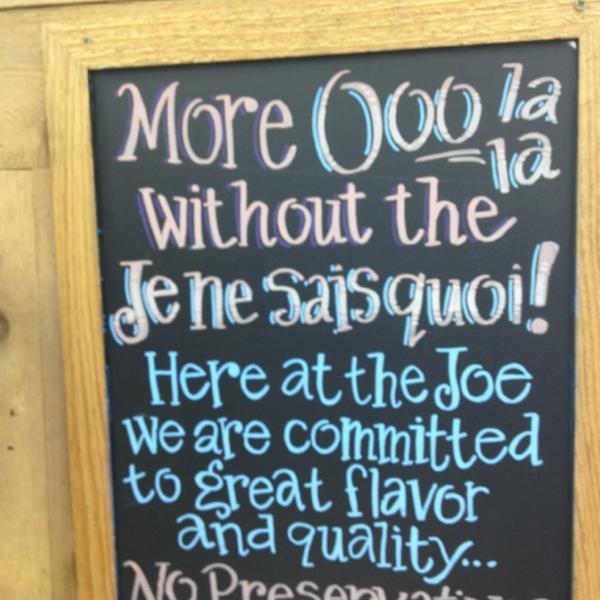 More Ooo la la
without the
Je ne sais quoi!
Here at the Joe
we are committed
to great flavor
and quality...
No